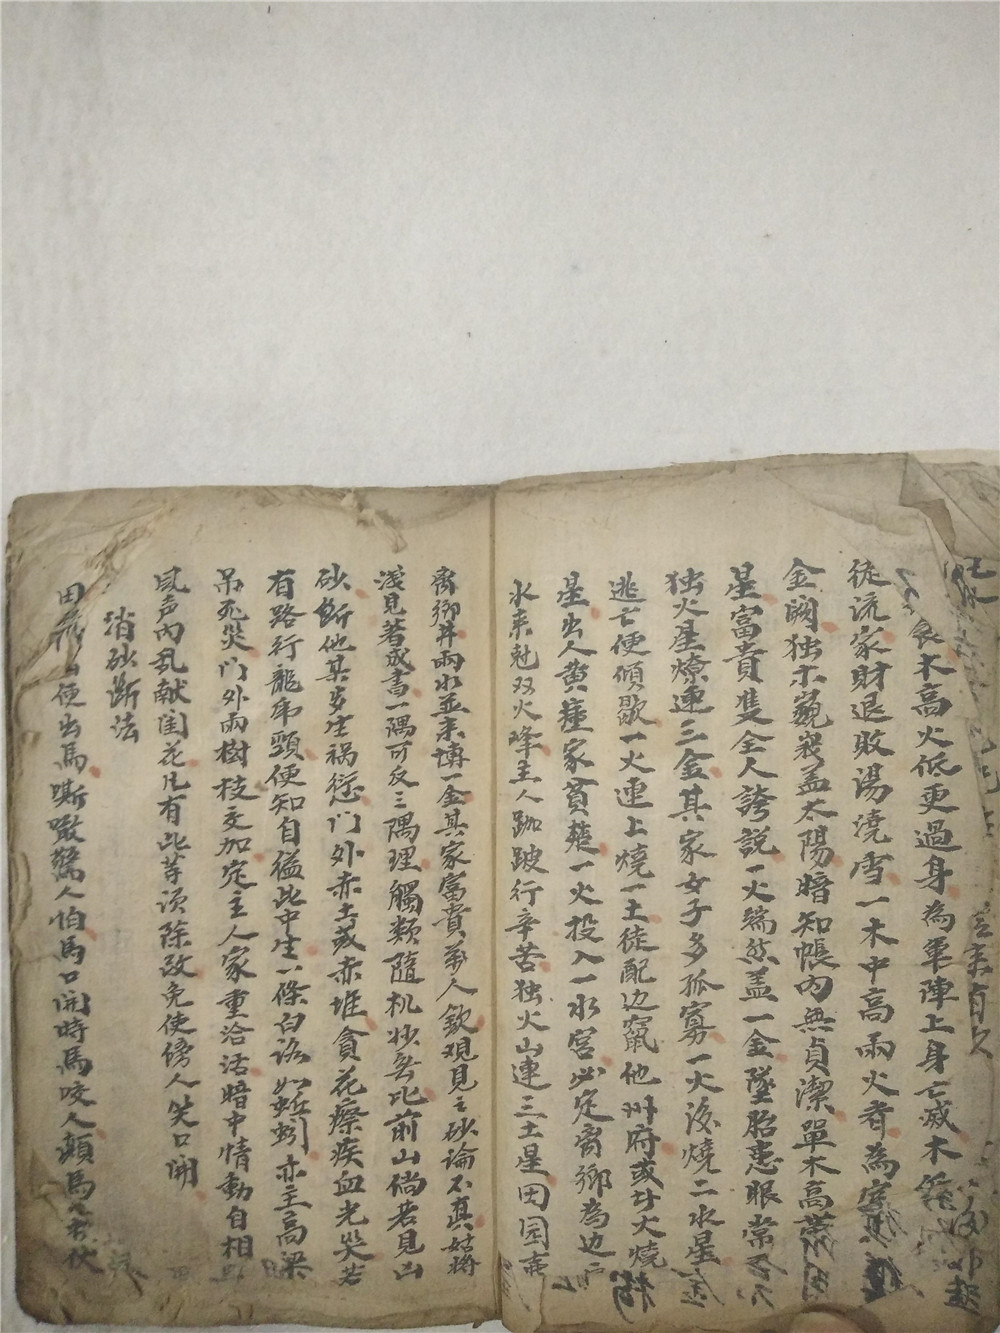 衾木高火低更過身為軍陣上身亡滅木
徒流家財退敗湯澆雪一木中高兩火者為
金闕独木巍峩盖太陽暗知帳內無貞潔單木高
星富貴隻全人誇說一火端然盖一金墜胎患眼常
独火星燎連三金其家女子多孤寡一火後燒二水星
逃亡便傾歇一火連上燒一土徒配边竄他州府或廾火燒
星出人黄瘇家貧楚一火投入一水宮必定离鄉為边
水来尅双火峰主人跏跛行辛苦独火山連三土星田园
离鄉井兩水並来博一金其家富貴萬人欽观見之砂論不真姑將
浅見著成書一隅可反三隅理觸類隨机妙無比前山倘若見山
砂断他某岁生祸愆门外赤土或赤堆貪花瘵疾血光灾若
有路行龍席頸便知自縊此中生一條白路如蚯蚓亦主高梁
吊死灾门外兩樹枝交加定主人家重治活暗中情動自相
風声內乱献閨花凡有此等須除改免使傍人笑口開
消砂断法
田 山便出馬嘶蹾驚人怕馬口開時馬咬人顛馬